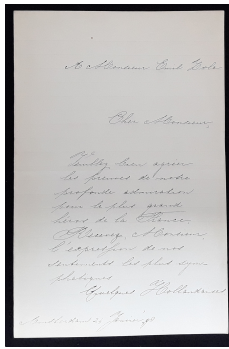 A Monsieur Emil Zola
Cher Monsieur,
Veuillez bien agréer
les preuves de notre
profonde admiration
pour le plus grand
héros de la France.
Recevez, Monsieur,
l'expression de nos
sentiments les plus sym
pathiques
Quelques Hollandaises